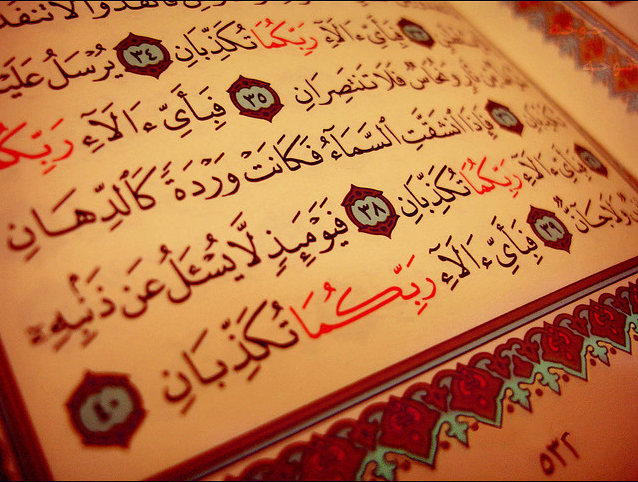 فَانفُذُوا لَا تَنفُذُ
فَبِأَيِّ ءَالَآءِ رَبِّكُمَا تُكَذِّبَانِ ٣٤ يُرْسَلُ عَلَيْ
مِّن نَّارٍ وَنُحَاسٌ فَلَا تَنتَصِرَانِ ٣٥ فَبِأَيِّ ءَالَآءِ رَبِّكُ
تُكَذِّبَانِ ٣٦ فَإِذَا ٱنشَقَّتِ ٱلسَّمَآءُ فَكَانَتْ وَرْدَةً كَٱلدِّهَانِ
٣٧ فَبِأَيِّ ءَالَآءِ رَبِّكُمَا تُكَذِّبَانِ ٣٨ فَيَوْمَئِذٍ لَّا يُسْـَٔلُ عَن ذَنۢبِهِۦٓ
وَلَا جَآنٌّ ٣٩ فَبِأَيِّ ءَالَآءِ رَبِّكُمَا تُكَذِّبَانِ ٤٠
٥٣٢